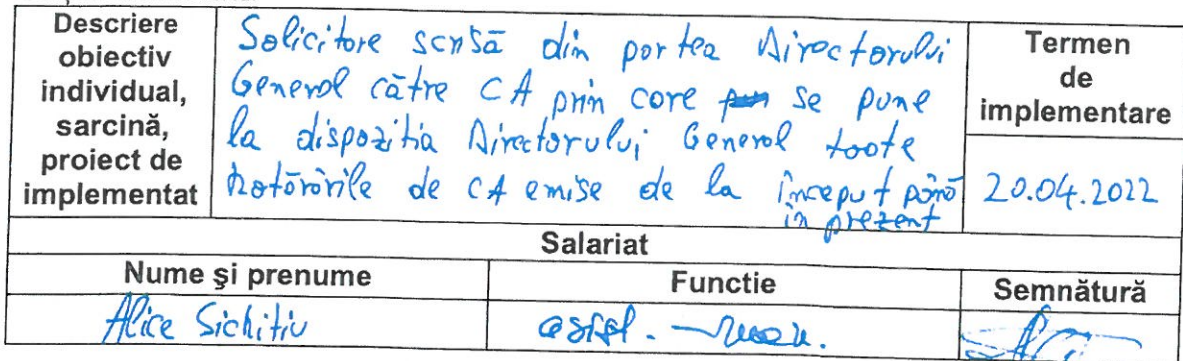 Descriere
obiectiv
individual,
sarcină,
proiect de
implementat
Solicitare scrisă din partea Directorului
General către CA prin care se pune
la dispoziția Directorului General toate
hotărârile de CA emise de la început până
în prezent
Termen
de
implementare
20.04.2022
Salariat
Nume și prenume
Functie
Semnătură
Alice Sichitiu
asist.